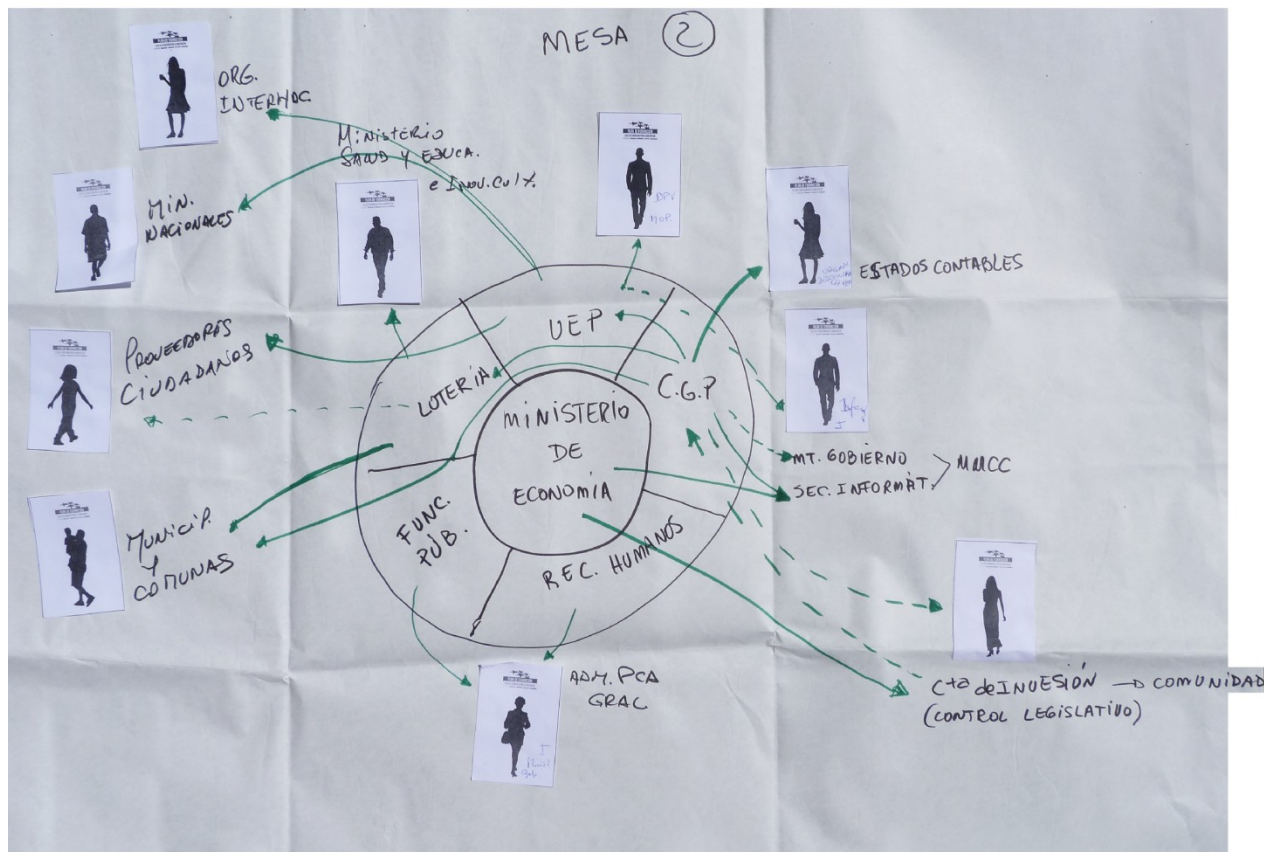 MESA 2
ORG.
INTERNAC
MINISTERIO
SALUD Y EDUCA.
e INOV. CULT.
MIN.
NACIONALES
DPV
MOP.
ESTADOS CONTABLES
PROVEEDORES
CIUDADANOS
UEP
LOTERIA
C.G.P
MINISTERIO
DE
ECONOMÍA
MT. GOBIERNO
SEC. INFORMÁT.
MMCC
MUNICIP.
Y
COMUNAS
FUNC.
PÚB.
REC. HUMANOS
ADM. PCA
GRAL
Cta de INVESIÓN → COMUNIDAD
(CONTROL LEGISLATIVO)